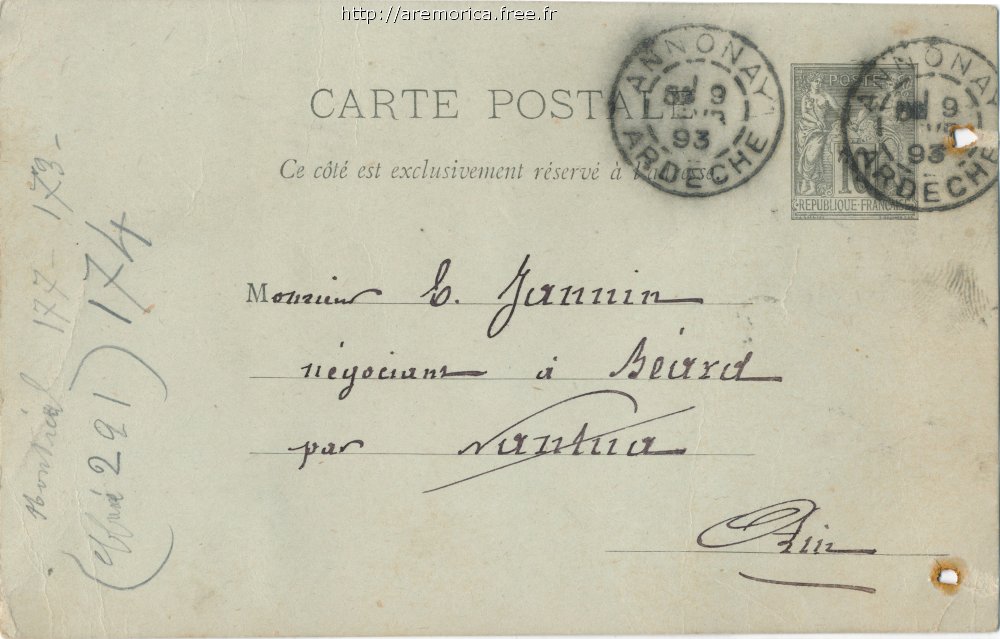 http://aremorica.free.fr
CARTE POSTALE
Ce côté est exclusivement réservé à l'adresse.
ANNONAY
9
93
ARDECHE
POSTES
10
REPUBLIQUE FRANÇAISE
ANNONAY
9
93
ARDECHE
Monsieur E. Jannin
négociant à Béard
par Nantua
Ain
177 - 173 -
291) 174